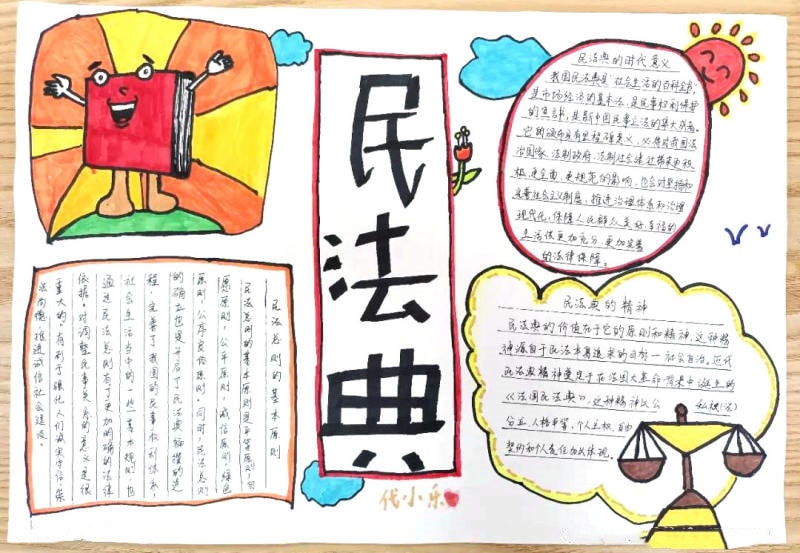 民法典
民法典的时代意义
我国民法典是"社会生活的百科全书"
是市场经济的基本法,是民事权利保护
的宣言书,是新中国民事立法的集大成者。
它的颁布具有里程碑意义,必将对我国法
治国家、法制政府、法制社会建设带来更积
极、更全面、更规范的影响,也会对坚持和
完善社会主义制度、推进治理体系和治理
现代化,保障人民群众美好生活的
生活供更加充分、更加完善
的法律保障。
民法典的精神
民法典的价值在于它的原则和精神,这种精
神源自于民法本身追求的目标—社会自治。近代
民法典精神奠定于在法国大革命背景中诞生的
《法国民法典》。这种精神以公
私权(法)
分立、人格平等、个人主权、自由
契约和个人责任加以体现。
民法总则的基本原则
民法总则的基本原则是平等原则,自
愿原则,公平原则,诚信原则,绿色
原则,公序良俗原则。同时,民法总则
的确立也更开启了民法典编撰的进
程,完善了我国的民事权利体系,
社会生活当中的一些基本规则,也
通过民法总则有了更加的明确的法律
依据。对调整民事关系的意义是很
重大的。有利于强化人们诚实守信,崇
法尚德,推进诚信社会建设。
代小乐